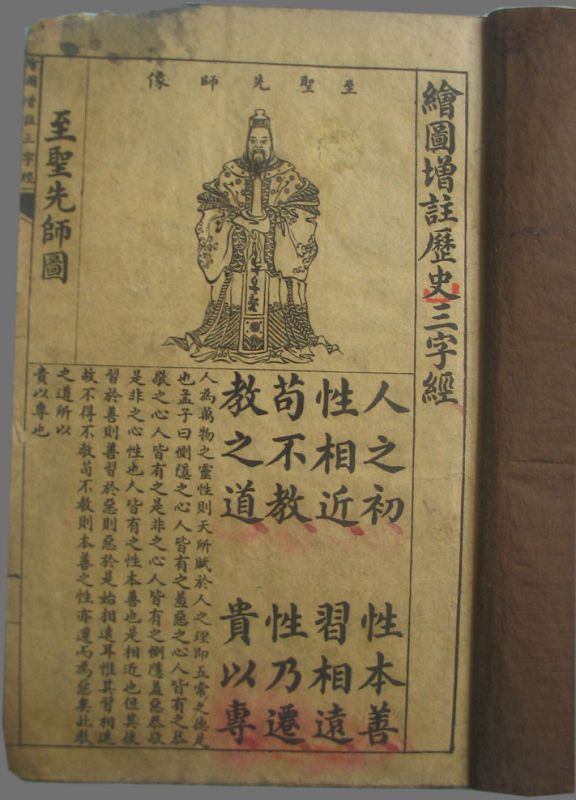 繪圖增註歷史三字經
至聖先師像
人之初 性本善
性相近 習相遠
苟不教 性乃遷
教之道 貴以專
人為萬物之靈性則天所賦於人之理即五常之德是
也孟子曰惻隱之心人皆有之羞惡之心人皆有之恭
敬之心人皆有之是非之心人皆有之惻隱羞惡恭敬
是非之心性也人皆有之性本善也是相近也但其後
習於善則善習於惡則惡於是始相遠耳惟其習相遠
故不得不教苟不教則本善之性亦遷而為惡矣此教
之道所以
貴以專也
至聖先師圖
繪圖增註三字經